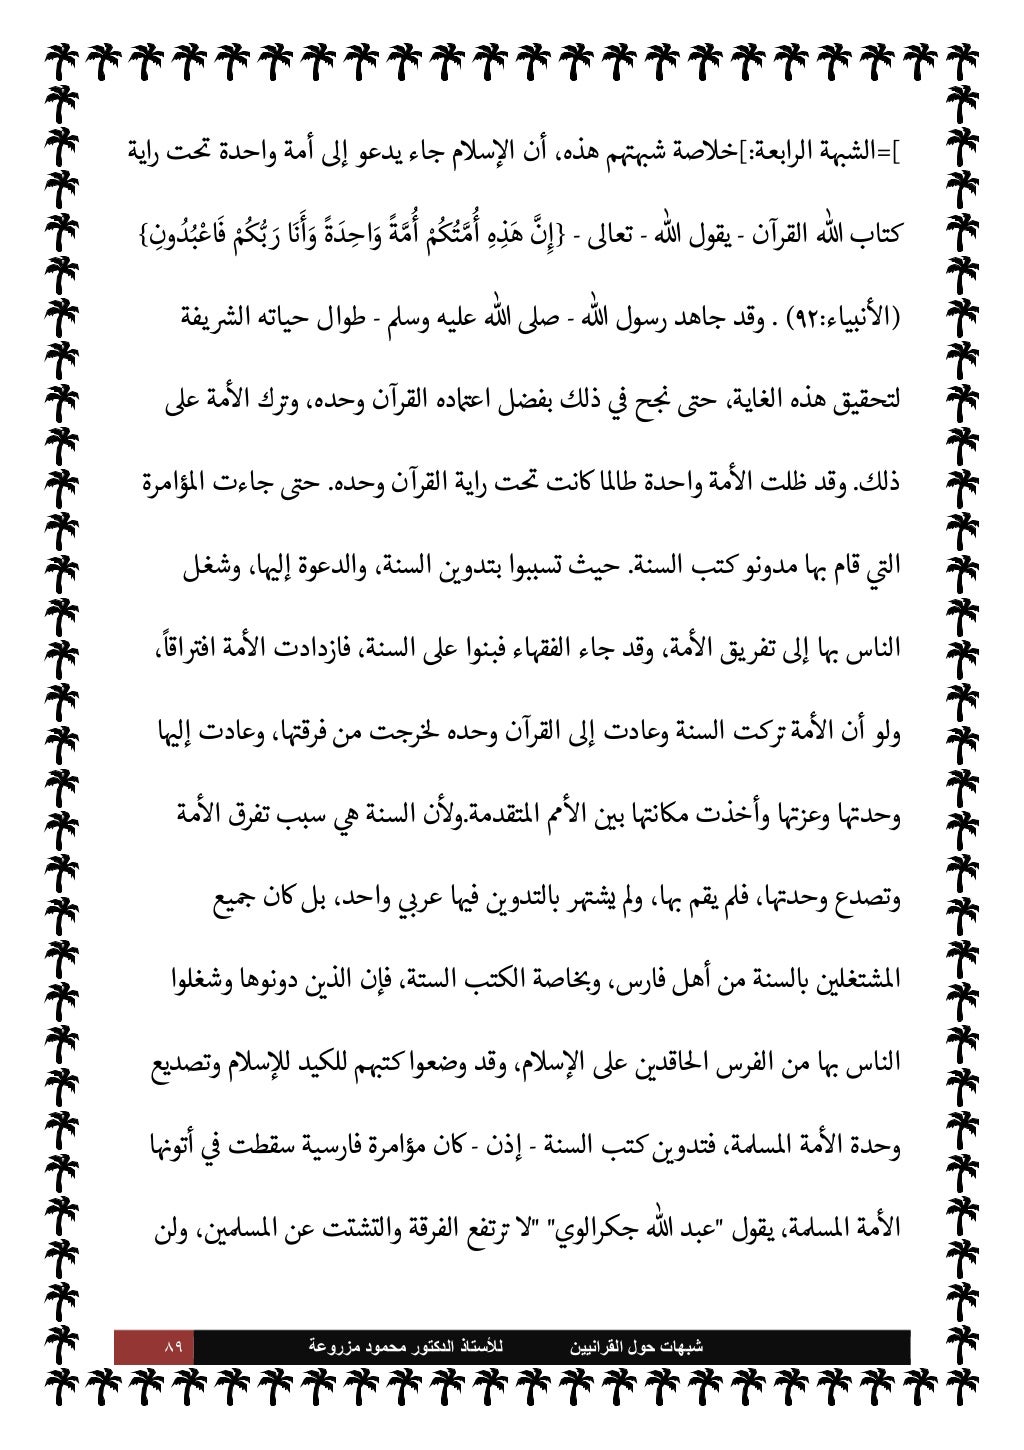 ]=الشبهة الرابعة:]خلاصة شبهتهم هذه، أن الإسلام جاء يدعو إلى أمة واحدة تحت راية
كتاب الله القرآن - يقول الله - تعالى - {إِنَّ هَذِهِ أُمَّتُكُمْ أُمَّةً وَاحِدَةً وَأَنَا رَبُّكُمْ فَاعْبُدُونِ}
(الأنبياء:٩٢) . وقد جاهد رسول الله - صلى الله عليه وسلم - طوال حياته الشريفة
لتحقيق هذه الغاية، حتى نجح في ذلك بفضل اعتماده القرآن وحده، وترك الأمة على
ذلك. وقد ظلت الأمة واحدة طالما كانت تحت راية القرآن وحده. حتى جاءت المؤامرة
التي قام بها مدونو كتب السنة. حيث تسببوا بتدوين السنة، والدعوة إليها، وشغل
الناس بها إلى تفريق الأمة، وقد جاء الفقهاء فبنوا على السنة، فازدادت الأمة افتراقاً،
ولو أن الأمة تركت السنة وعادت إلى القرآن وحده لخرجت من فرقتها، وعادت إليها
وحدتها وعزتها وأخذت مكانتها بين الأمم المتقدمة.ولأن السنة هي سبب تفرق الأمة
وتصدع وحدتها، فلم يقم بها، ولم يشتهر بالتدوين فيها عربي واحد، بل كان جميع
المشتغلين بالسنة من أهل فارس، وبخاصة الكتب الستة، فإن الذين دونوها وشغلوا
الناس بها من الفرس الحاقدين على الإسلام، وقد وضعوا كتبهم للكيد للإسلام وتصديع
وحدة الأمة المسلمة، فتدوين كتب السنة - إذن - كان مؤامرة فارسية سقطت في أتونها
الأمة المسلمة، يقول "عبد الله جكرالوي" "لا ترتفع الفرقة والتشتت عن المسلمين، ولن
شبهات حول القرانيين للأستاذ الدكتور محمود مزروعة ٨٩